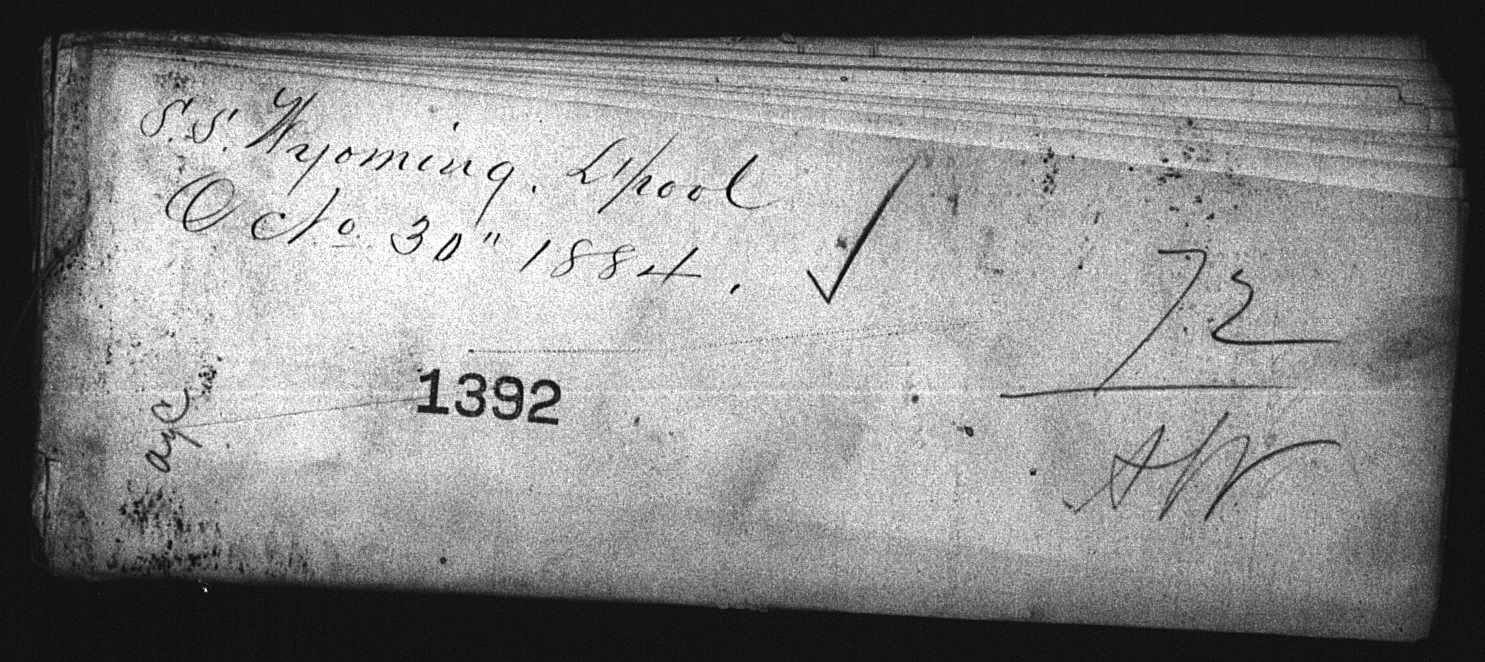 S.S. Wyoming. L'pool
Octo 30" 1884.
72
1392